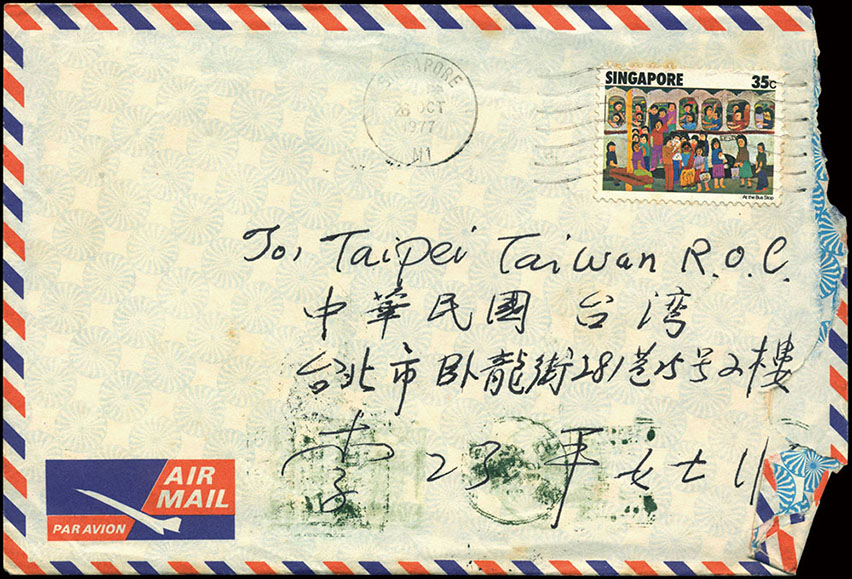 SINGAPORE
26 OCT
1977
SINGAPORE 35c
At the Bus Stop
To, Taipei Taiwan R.O.C.
中華民國 台湾
台北市卧龍街281巷15号2樓
李 平女士
AIR
MAIL
PAR AVION